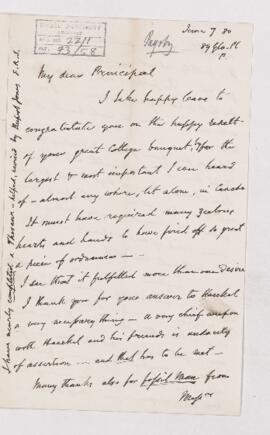 June 7 80
2211
43/58
My dear Principal
I take happy leave to
congratulate you on the happy result
of your great College banquet, & for the
largest & most important I ever heard
of - almost any where, let alone, in Canada
It must have required many zealous
hearts and hands to have fired off so great
a piece of ordnance -
I see that it fulfilled more than one desire
I thank you for your answer to Haeckel
a very necessary thing - a very chief weapon
with Haeckel and his friends is audacity
of assertion - and that has to be met -
Many thanks also for fossil Man from
Messrs
I have nearly completed a Thesaur - helped, revised by Rupert Jones F.R.S.